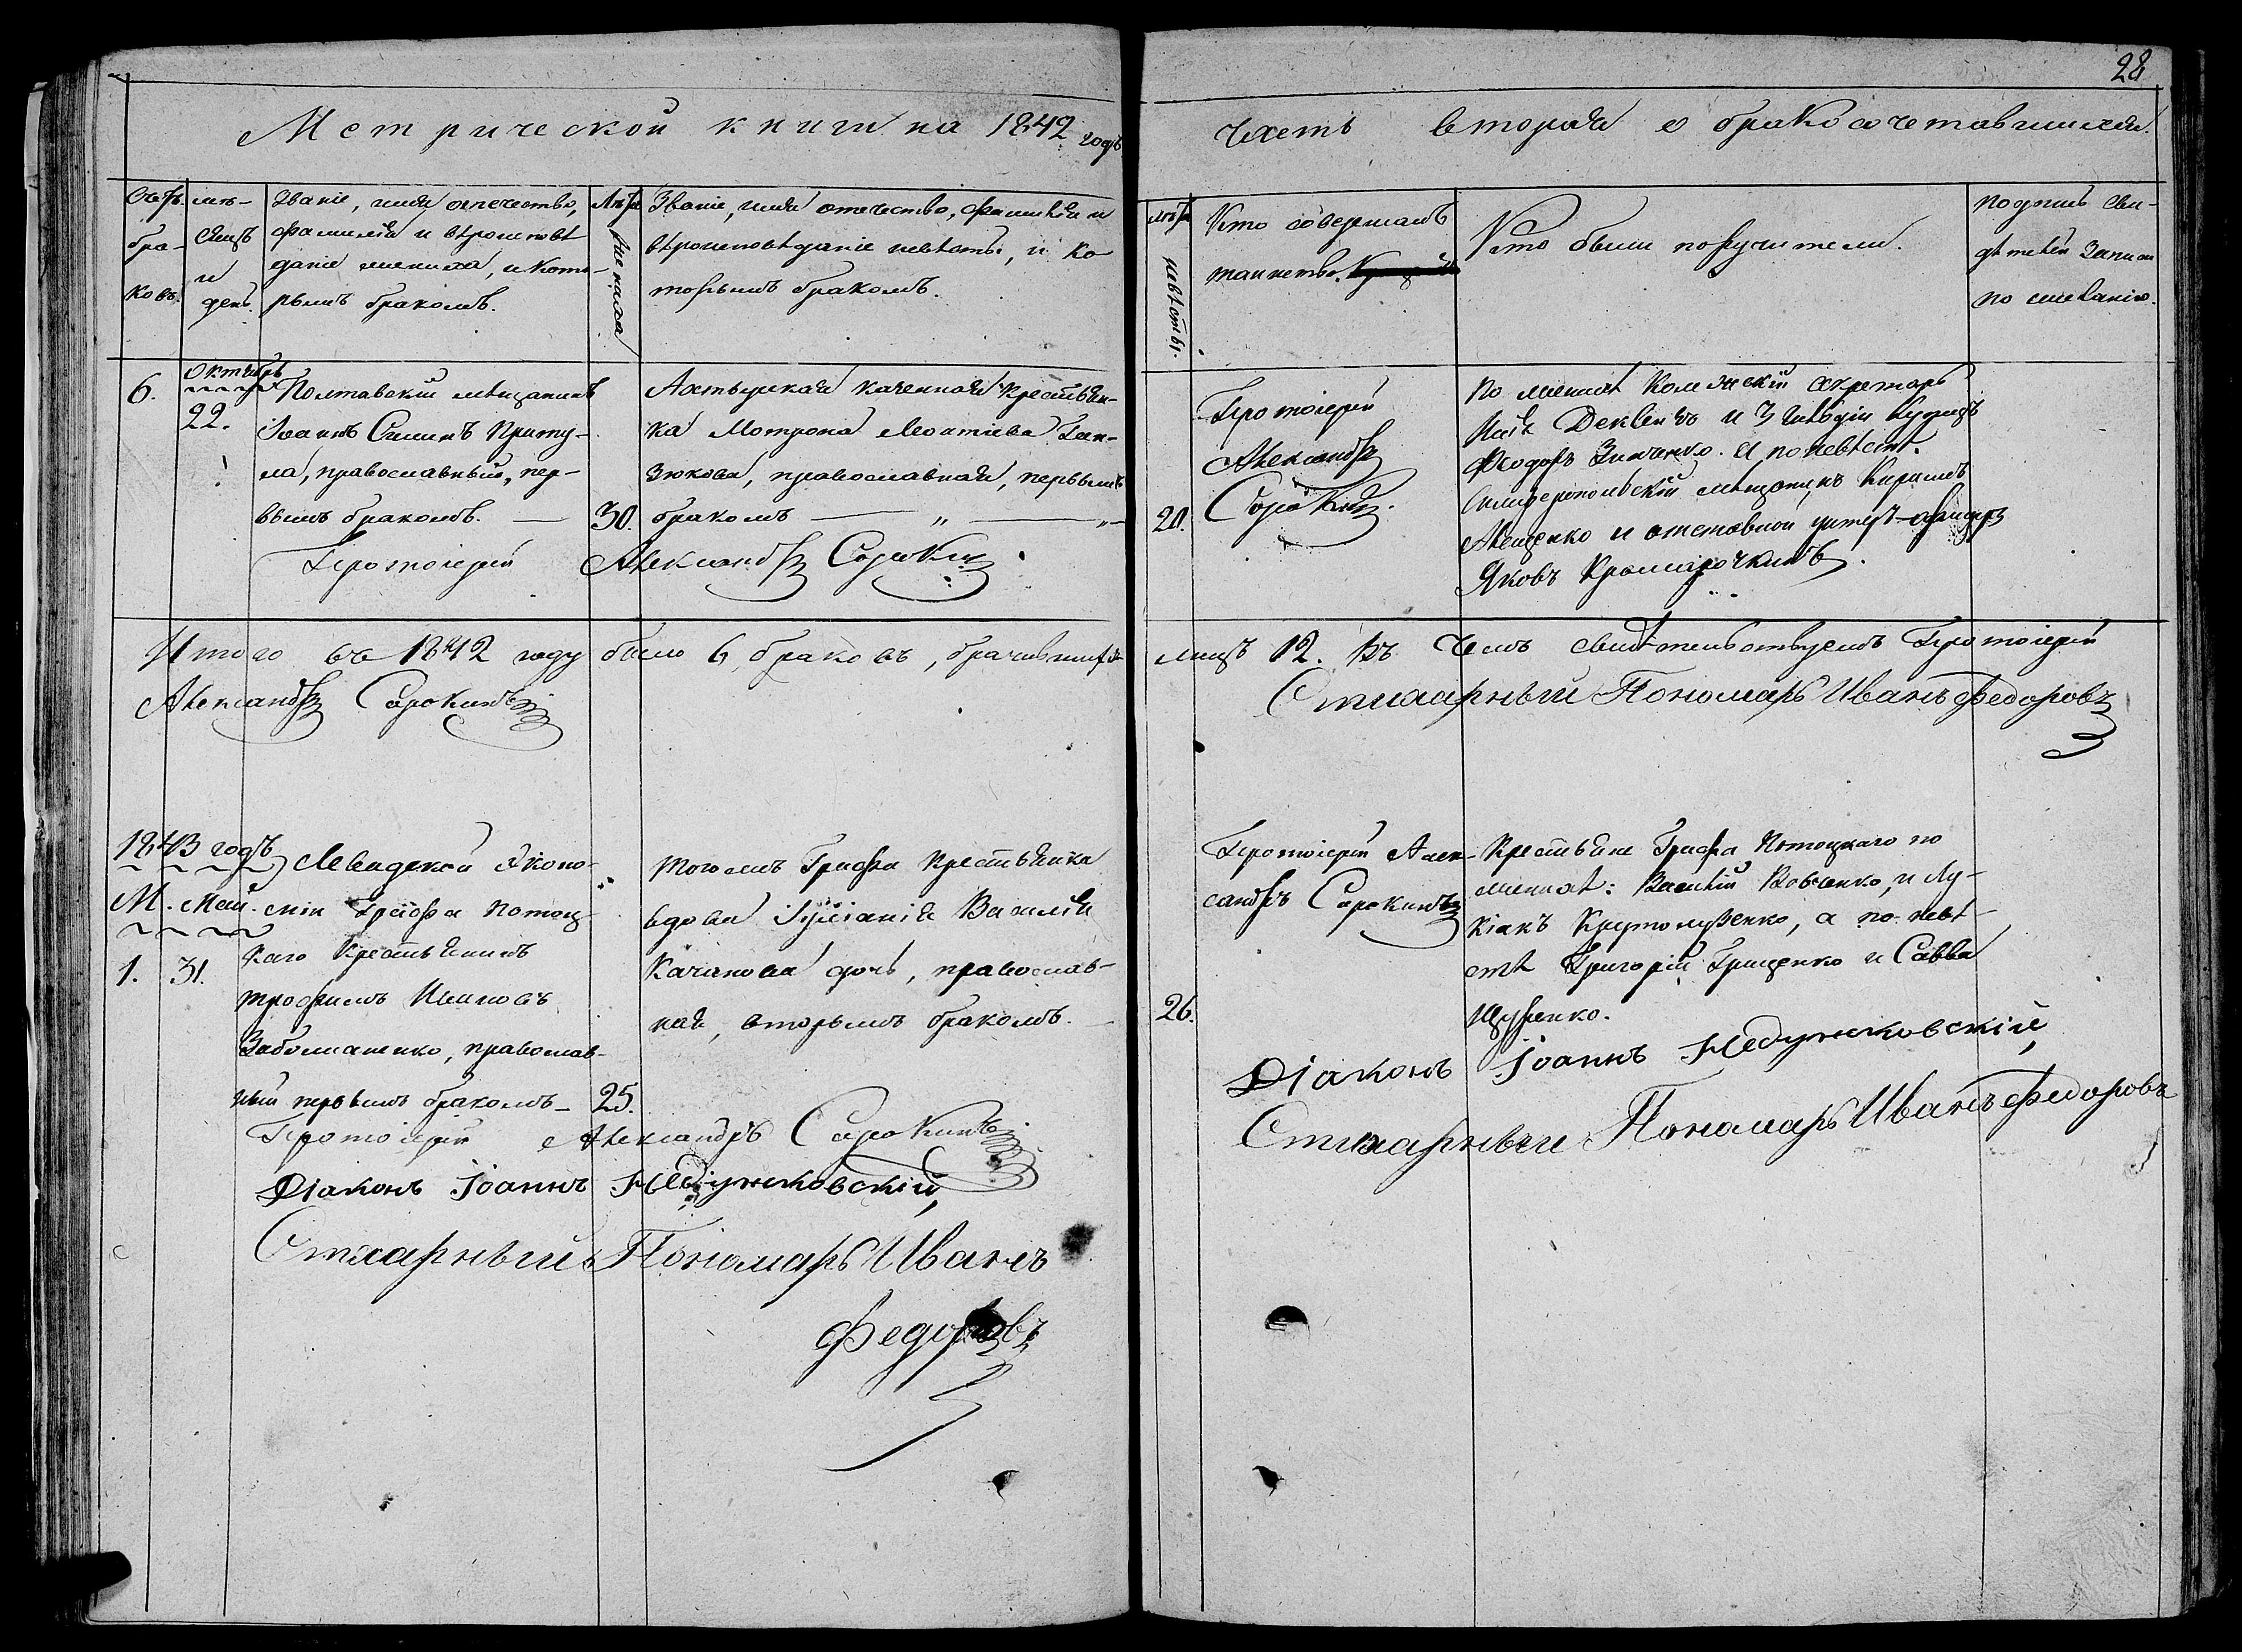 28
Метрической книги на 1842 годъ
часть вторая о бракосочетавшихся.
Счетъ
бра-
ковъ.
мѣ-
сяцъ
и
день.
Званіе, имя отечество,
фамилія и вѣроисповѣ
даніе жениха, и кото-
рымъ бракомъ.
Лѣта
жениха
Званіе, имя отечество, фамилія и
вѣроисповѣданіе невѣсты, и ко
торымъ бракомъ.
Лѣта
невѣсты.
Кто совершалъ
таинство.
Кто были поручители.
подпись сви-
дѣтелей записи
по желанію.
6.
Октябрь
22.
Полтавскій мѣщанинъ
Іоаннъ Симинъ Приту-
ла, православный, пер-
вымъ бракомъ. —
30.
Ахтырская казенная крестьян-
ка Мотрона Леонтіева Ган-
зюкова, православная, первымъ
бракомъ — „ — „ —
Протоіерей Александръ Сорокинъ
20.
Протоіерей
Александръ
Сорокинъ.
По женихѣ Колежскій секретарь
и 3 гильдіи купецъ
Феодоръ Зинченко. А по невѣстѣ.
Симферопольскій мѣщанинъ Кирилъ
Лещенко и отставной унтеръ-офицеръ
Яковъ Крамарочкинъ.
Итого въ 1842 году было 6 браковъ, брачившихся
лицъ 12. Въ чемъ свидѣтельствуемъ Протоіерей
Александръ Сорокинъ
Стихарный Пономарь Иванъ Федоровъ
1843 годъ
М. Май.
1. 31.
Левадской Эконо-
міи Графа Потоц-
каго крестьянинъ
трофимъ Ивановъ
Заболшненко, православ-
ный первымъ бракомъ — 25.
тогожъ Графа крестьянка
вдова Іуліанія Василія
Качанова дочь, православ-
ная, вторымъ бракомъ. —
26.
Протоіерей Алек-
сандръ Сорокинъ
Крестьяне Графа Потоцкаго по
женихѣ: Василій Вовченко, и Лу-
кіанъ Крутолуженко, а по невѣ-
стѣ Григорій Грищенко и Савва
Щуренко.
Протоіерей Александръ Сорокинъ
Діаконъ Іоаннъ Недужковскій,
Стихарный Пономарь Иванъ
Федоровъ
Діаконъ Іоаннъ Недужковскій,
Стихарный Пономарь Иванъ Федоровъ